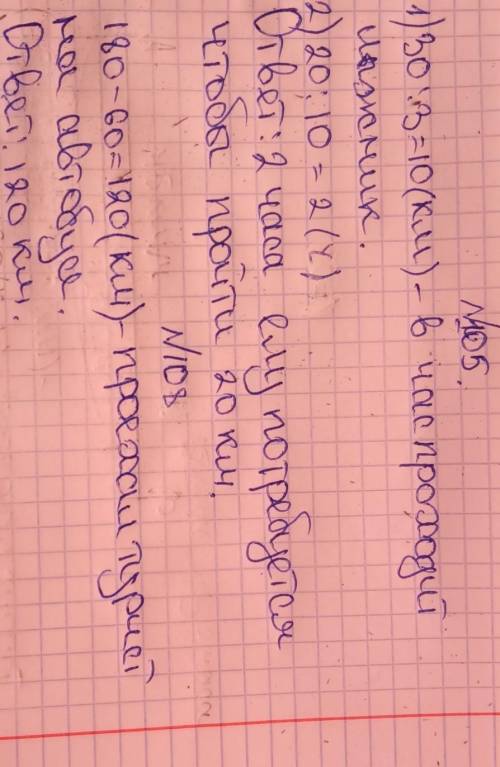 №105.
1) 30:3=10(км)- в час проходит
лыжник.
2) 20:10=2(ч)
Ответ: 2 часа ему потребуется
чтобы пройти 20 км.
№108
180-60=120(км)- проехали турист
на автобусе.
Ответ: 120 км.